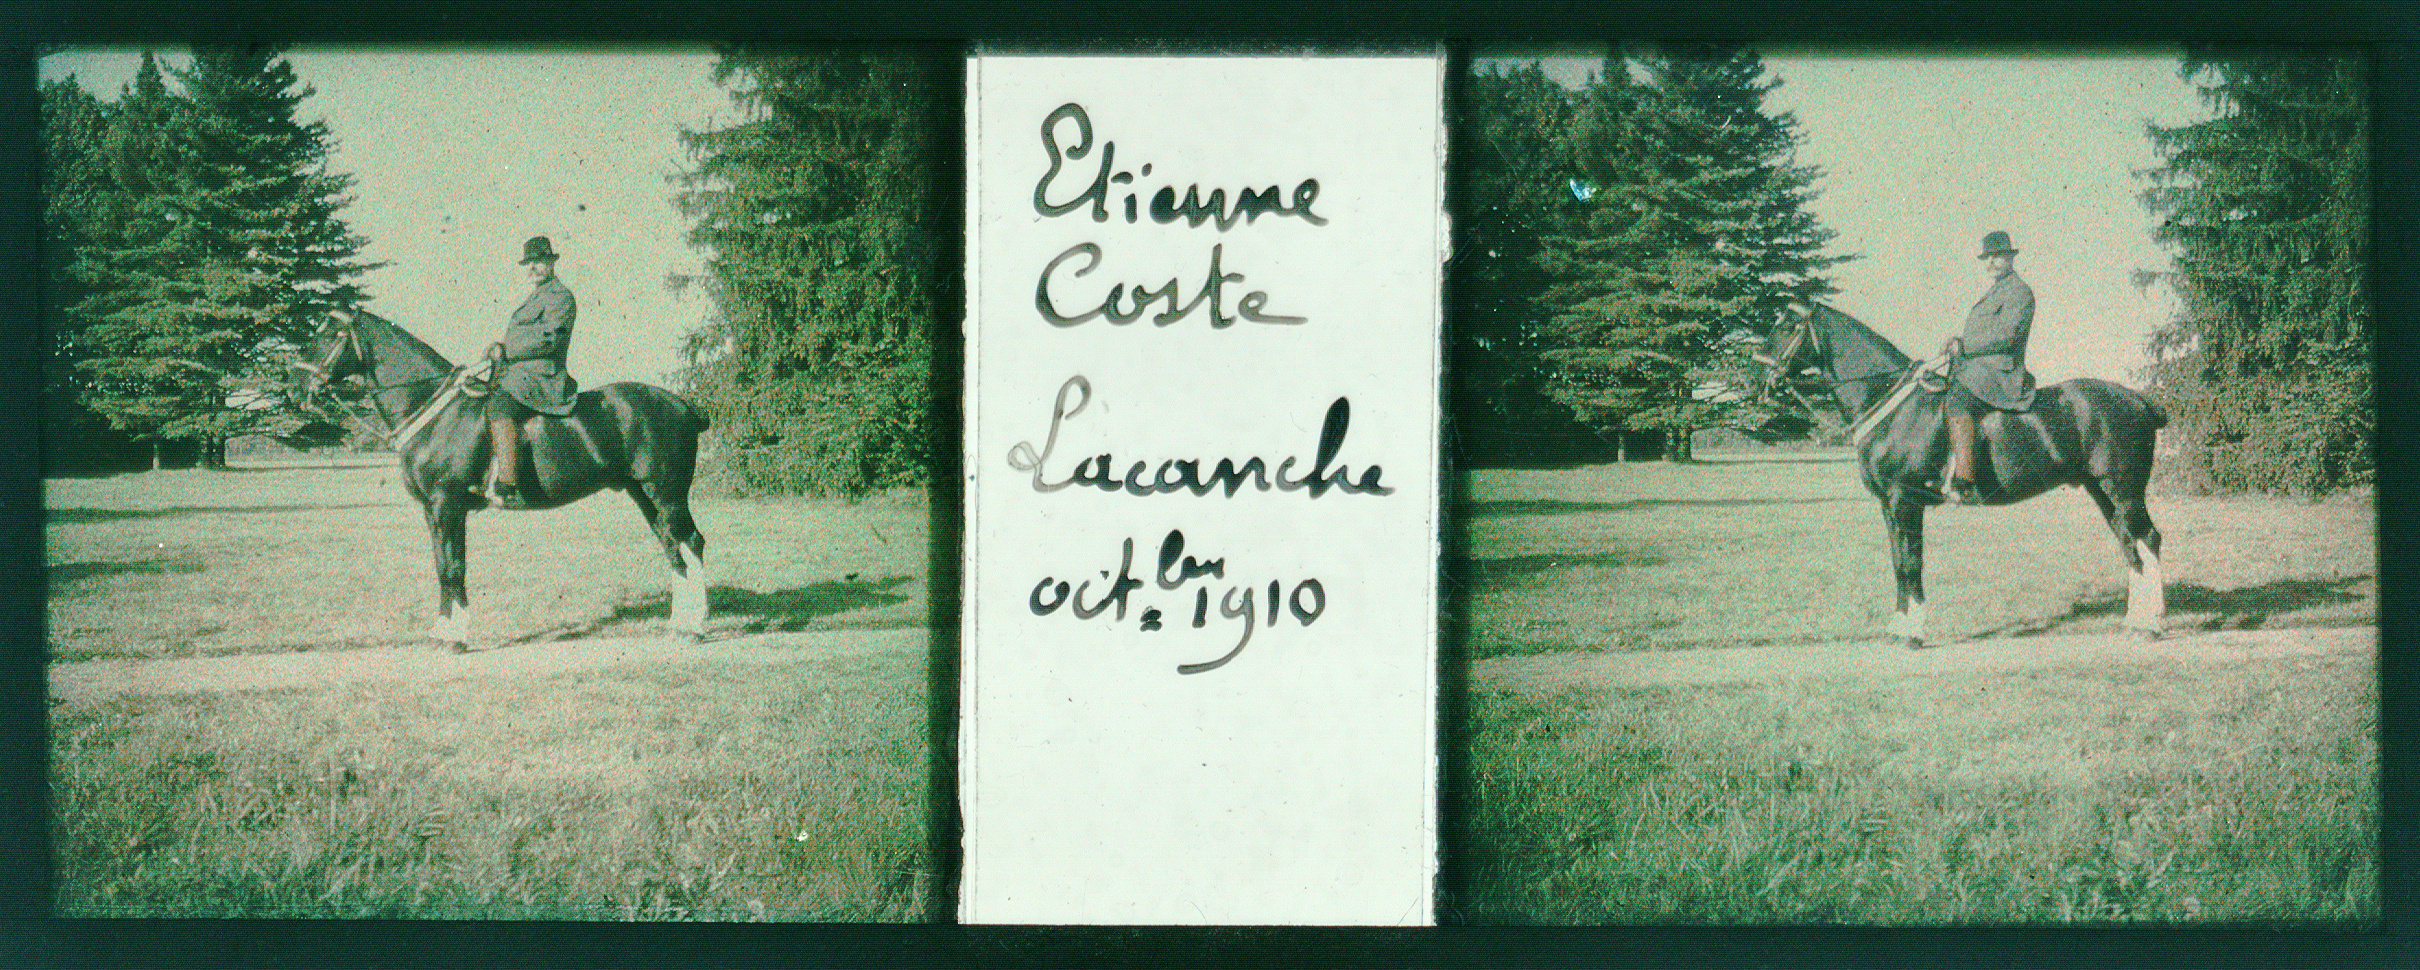 Etienne
Coste
Lacanche
octbre 1910